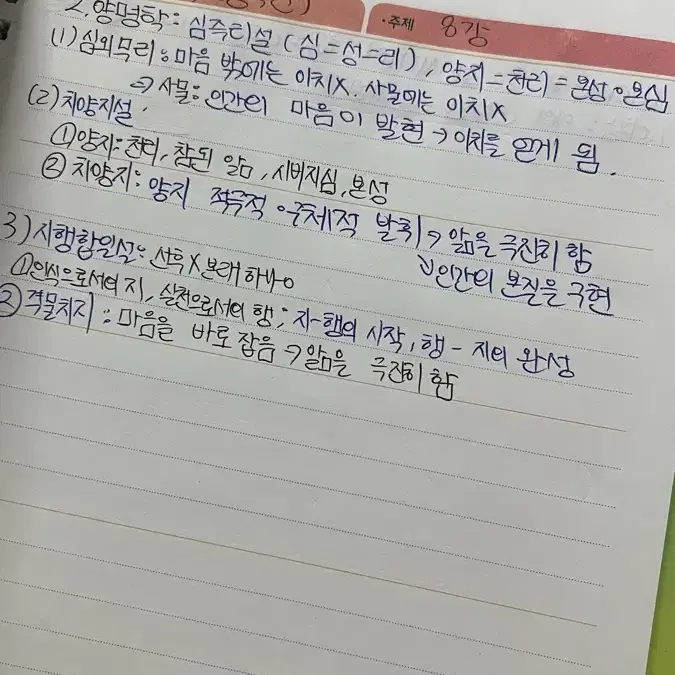 ·주제 8강
2. 양명학: 심즉리설 (심=성=리), 양지=천리=본성·본심
(1) 심외무리: 마음 밖에는 이치X. 사물에는 이치X
→ 사물: 인간의 마음이 발현 → 이치를 얻게 됨.
(2) 치양지설.
① 양지: 천리, 참된 앎, 시비지심, 본성
② 치양지: 양지 적극적 구체적 발휘 → 앎을 극진히 함
인간의 본질을 구현
3) 지행합일설: 선후X 본래 하나o
① 인식으로서의 지, 실천으로서의 행; 지-행의 시작, 행-지의 완성
② 격물치지: 마음을 바로 잡음 → 앎을 극진히 함